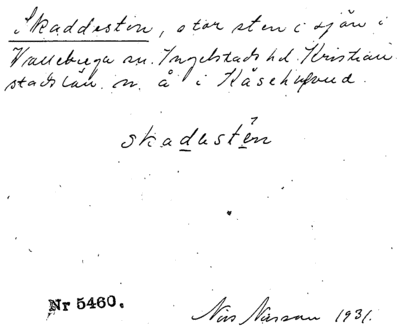 Skaddesten, stor sten i sjön i
Vallebyrga sn. Ingelstads hd. Kristian
stads län. n. å i Kåsehuvud.
skadestén
Nr 5460.
Nils Nilsson 1931.